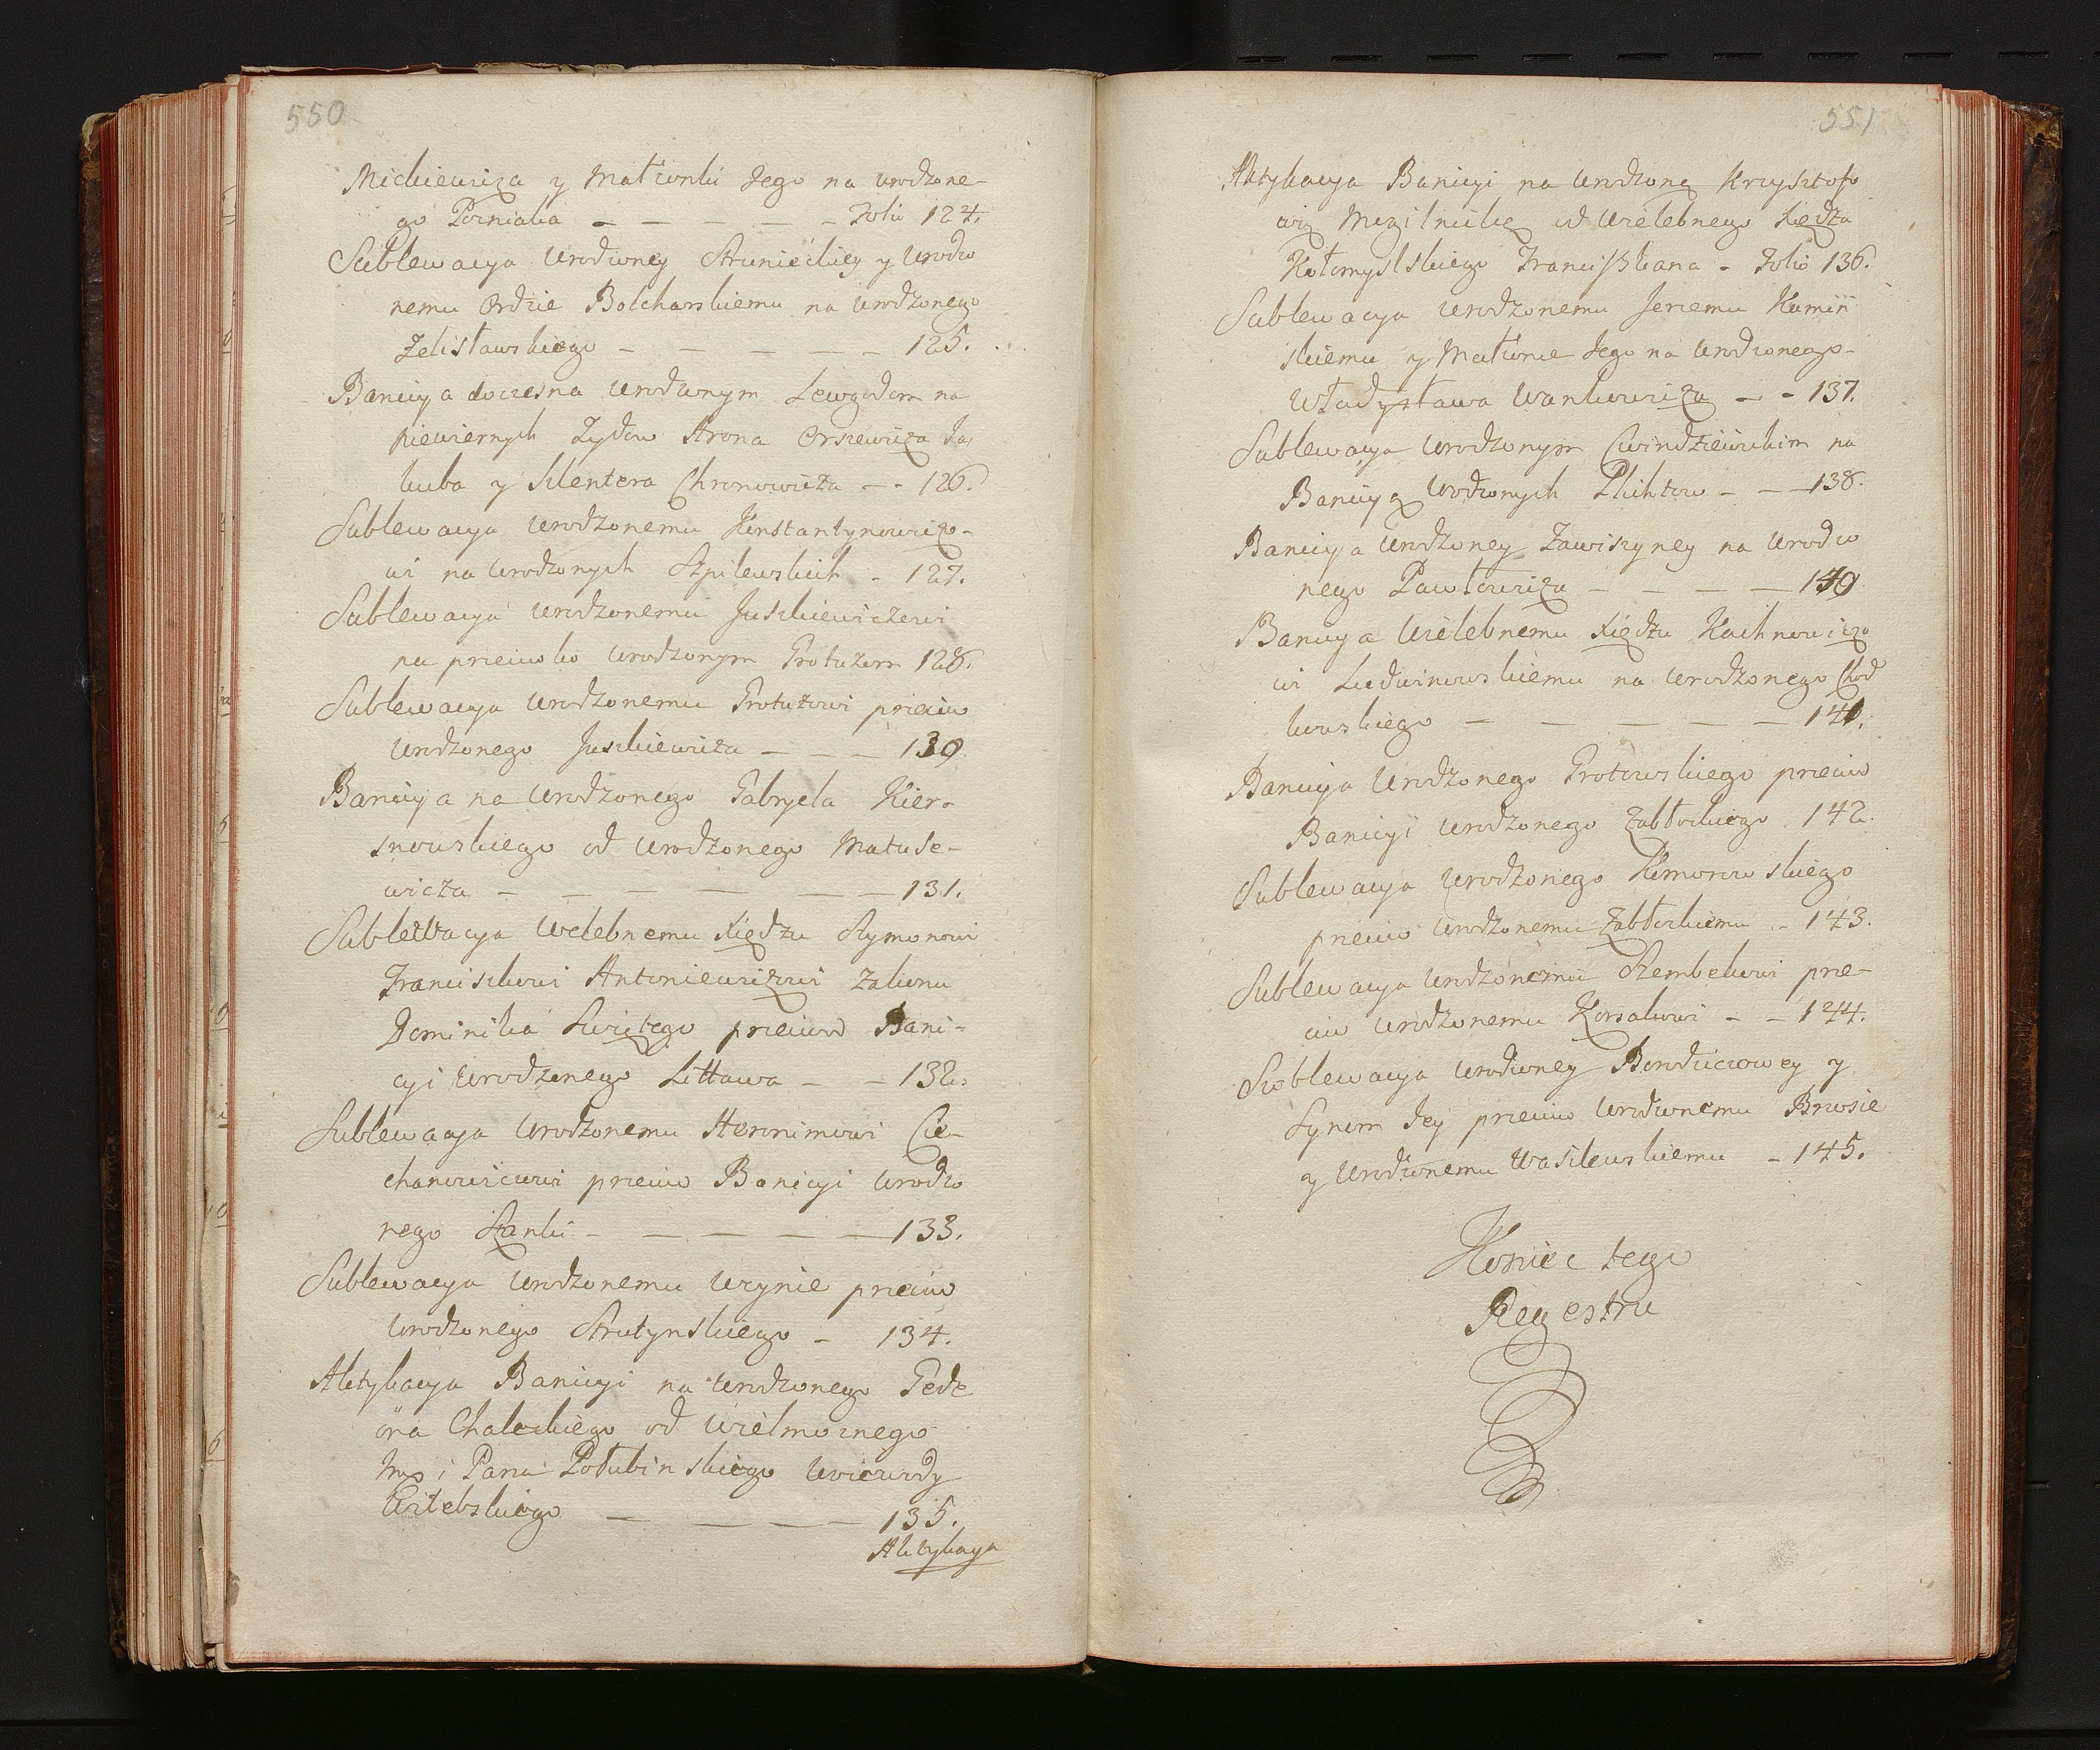 550
Mickiewicza y Małzonki Jego na urodzone-
go Pozniaka — — — — — Folio 124.
Sublewacya Urodzoney Strunieckiey y Urodzo
nemu Ordzie Bolcharskiemu na Urodzonego
Zelisławskiego — — — — — 125.
Banicya doczesna Urodzonym Lewgodom na
niewiernych Zydow Arona Orszewicza Ja,
kuba y Szlentera Chronowicza — - 126.
Sublewacya Urodzonemu Konstantynowiczo-
wi na Urodzonych Szpilewskich - 127.
Sublewacya Urodzonemu Juszkiewiczowi
na przeciwko Urodzonym Protuzom 128.
Sublewacya Urodzonemu Protuzowi przeciw
Urodzonego Juszkiewicza — — — 130
Banicya na Urodzonego Gabryela Kier-
snowskiego od Urodzonego Matuse-
wicza — — — — — 131.
Sublewacya Welebnemu Xiędzu Szymonowi
Franciszkowi Antoniewiczowi Zakonu
Dominika Swiętego przeciwo Bani-
cyi Urodzonego Littawa — — 132.
Sublewacya Urodzonemu Heronimowi Cie-
chanowiczowi przeciw Banicyi Urodzo
nego Stanki — — — — — 133.
Sublewacya Urodzonemu Wrynie przeciw
Urodzonego Strutynskiego — 134.
Aktykacya Banicyi na Urodzonego Gede
ona Chaleckiego od Wielmoznego
Jmci Pana Połubinskiego Woiewody
Witebskiego — — — — 135.
Aktykacya
551
Aktykacya Banicyi na Urodzoną Krzysztofo
wią Mezilnicką od Wielebnego Xiędza
Kołomyslskiego Franciszkana - Folio 136.
Sublewacya Urodzonemu Jerzemu Kamiń
skiemu y Małzonce Jego na Urodzonego
Władysława Wankowicza — - 137.
Sublewacya Urodzonym Cwindziewickim na
Banicyą Urodzonych Plichtow — — 138.
Banicya Urodzoney Zawiszyney na Urodzo
nego Pawłowicza — — — — 140
Banicya Wielebnemu Xiędzu Kachnowiczo
wi Ludwinowskiemu na Urodzonego Chod
kowskiego — — — — — 141.
Banicya Urodzonego Grotowskiego przeciw
Banicyi Urodzonego Zabłockiego. 142.
Sublewacya Urodzonego Komorowskiego
przeciw Urodzonemu Zabłockiemu - 143.
Sublewacya Urodzonemu Szembekowi prze-
ciw Urodzonemu Korsakowi — — 144.
Sublewacya Urodzoney Borodziczowey y
Synom Jey przeciw Urodzonemu Brzosie
y Urodzonemu Wasilewskiemu - 145.
Koniec tego
Regestru